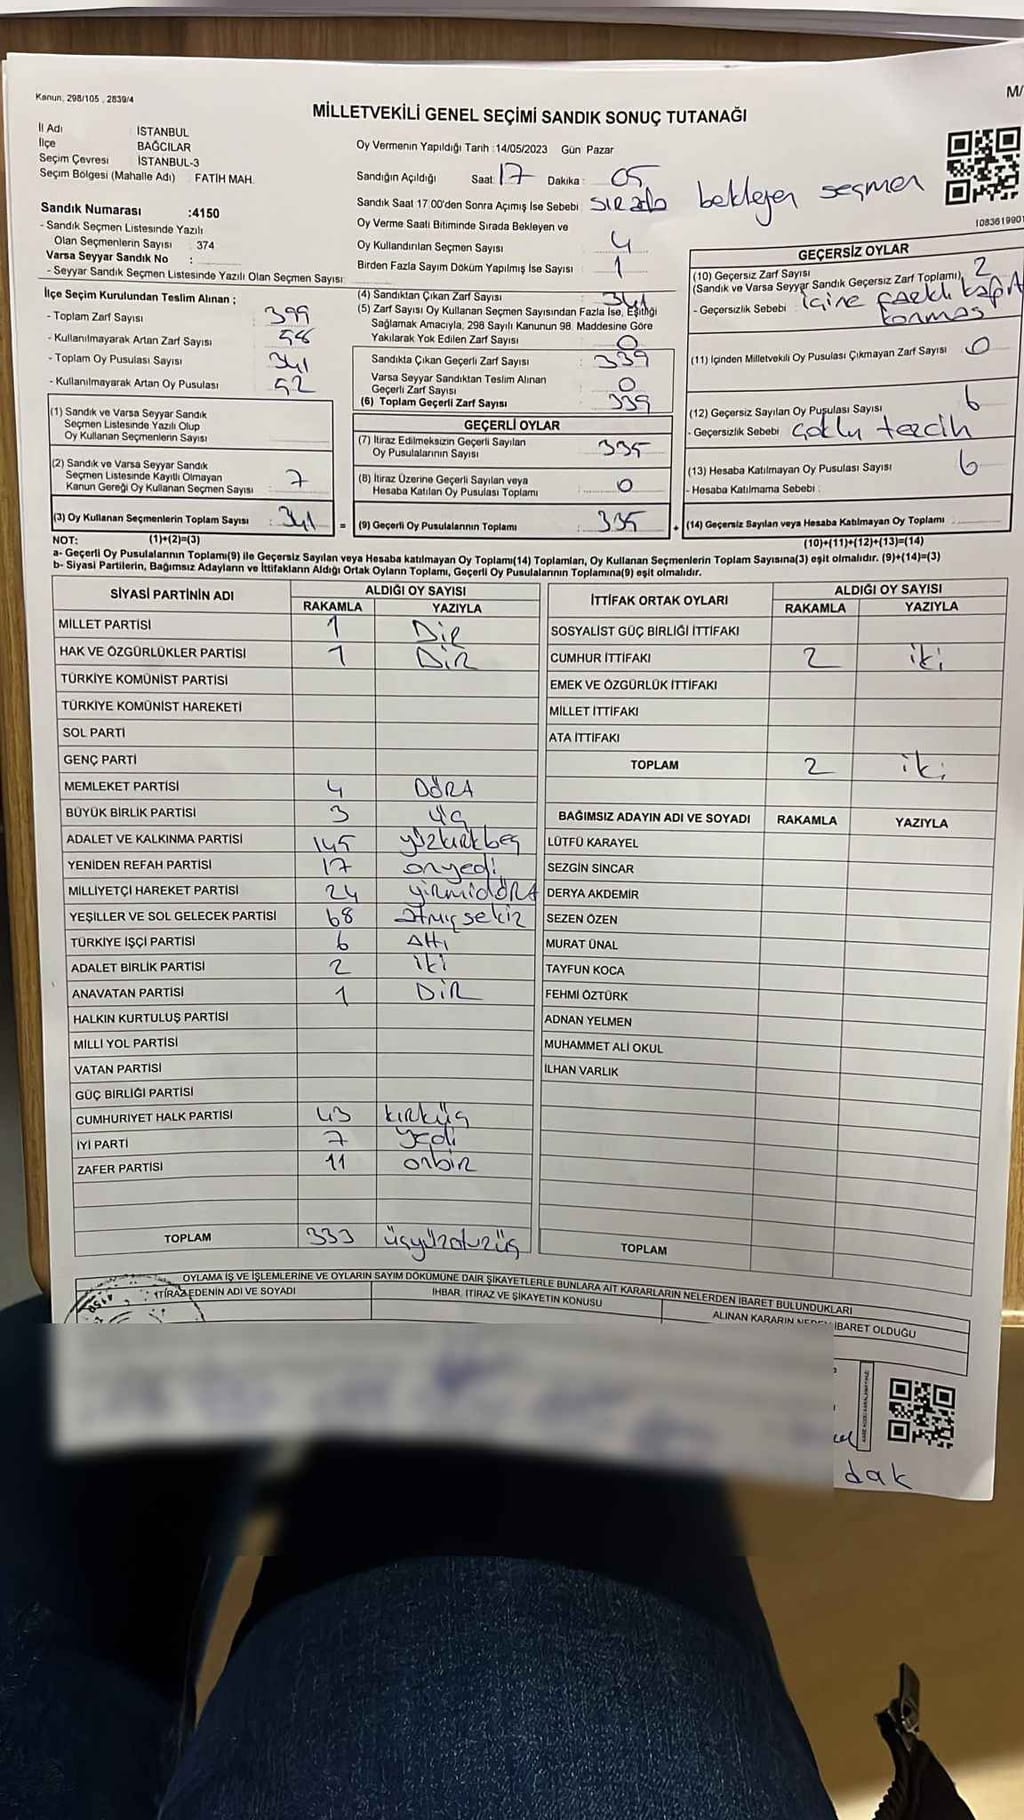 Kanun, 298/105 , 2839/4
M/
MİLLETVEKİLİ GENEL SEÇİMİ SANDIK SONUÇ TUTANAĞI
İl Adı İSTANBUL
İlçe BAĞCILAR
Seçim Çevresi İSTANBUL-3
Seçim Bölgesi (Mahalle Adı) FATİH MAH.
Oy Vermenin Yapıldığı Tarih :14/05/2023 Gün Pazar
Sandığın Açıldığı Saat 17 Dakika : 05
Sandık Saat 17.00'den Sonra Açımış İse Sebebi sırada bekleyen seçmen
Oy Verme Saati Bitiminde Sırada Bekleyen ve
Oy Kullandırılan Seçmen Sayısı 4
Birden Fazla Sayım Döküm Yapılmış İse Sayısı 1
Sandık Numarası :4150
- Sandık Seçmen Listesinde Yazılı
Olan Seçmenlerin Sayısı : 374
Varsa Seyyar Sandık No :
- Seyyar Sandık Seçmen Listesinde Yazılı Olan Seçmen Sayısı:
İlçe Seçim Kurulundan Teslim Alınan ;
- Toplam Zarf Sayısı : 399
- Kullanılmayarak Artan Zarf Sayısı 58
- Toplam Oy Pusulası Sayısı 341
- Kullanılmayarak Artan Oy Pusulası : 52
(1) Sandık ve Varsa Seyyar Sandık
Seçmen Listesinde Yazılı Olup
Oy Kullanan Seçmenlerin Sayısı :
(2) Sandık ve Varsa Seyyar Sandık
Seçmen Listesinde Kayıtlı Olmayan
Kanun Gereği Oy Kullanan Seçmen Sayısı : 7
(3) Oy Kullanan Seçmenlerin Toplam Sayısı : 341 =
(4) Sandıktan Çıkan Zarf Sayısı : 341
(5) Zarf Sayısı Oy Kullanan Seçmen Sayısından Fazla İse, Eşitliği
Sağlamak Amacıyla, 298 Sayılı Kanunun 98. Maddesine Göre
Yakılarak Yok Edilen Zarf Sayısı : 0
Sandıkta Çıkan Geçerli Zarf Sayısı : 339
Varsa Seyyar Sandıktan Teslim Alınan
Geçerli Zarf Sayısı : 0
(6) Toplam Geçerli Zarf Sayısı : 339
GEÇERLİ OYLAR
(7) İtiraz Edilmeksizin Geçerli Sayılan
Oy Pusulalarının Sayısı : 335
(8) İtiraz Üzerine Geçerli Sayılan veya
Hesaba Katılan Oy Pusulası Toplamı : 0
(9) Geçerli Oy Pusulalarının Toplamı : 335 +
1083619901
GEÇERSİZ OYLAR
(10) Geçersiz Zarf Sayısı
(Sandık ve Varsa Seyyar Sandık Geçersiz Zarf Toplamı) 2
- Geçersizlik Sebebi : içine farklı
(11) İçinden Milletvekili Oy Pusulası Çıkmayan Zarf Sayısı : 0
(12) Geçersiz Sayılan Oy Pusulası Sayısı : 6
- Geçersizlik Sebebi : çoklu tercih
(13) Hesaba Katılmayan Oy Pusulası Sayısı : 6
- Hesaba Katılmama Sebebi :
(14) Geçersiz Sayılan veya Hesaba Katılmayan Oy Toplamı :
NOT: (1)+(2)=(3)
(10)+(11)+(12)+(13)=(14)
a- Geçerli Oy Pusulalarının Toplamı(9) ile Geçersiz Sayılan veya Hesaba katılmayan Oy Toplamı(14) Toplamları, Oy Kullanan Seçmenlerin Toplam Sayısına(3) eşit olmalıdır. (9)+(14)=(3)
b- Siyasi Partilerin, Bağımsız Adayların ve İttifakların Aldığı Ortak Oyların Toplamı, Geçerli Oy Pusulalarının Toplamına(9) eşit olmalıdır.
SİYASİ PARTİNİN ADI ALDIĞI OY SAYISI
RAKAMLA YAZIYLA
MİLLET PARTİSİ 1 Bir
HAK VE ÖZGÜRLÜKLER PARTİSİ 1 Bir
TÜRKİYE KOMÜNİST PARTİSİ
TÜRKİYE KOMÜNİST HAREKETİ
SOL PARTİ
GENÇ PARTİ
MEMLEKET PARTİSİ 4 Dört
BÜYÜK BİRLİK PARTİSİ 3 üç
ADALET VE KALKINMA PARTİSİ 145 yüzkırkbeş
YENİDEN REFAH PARTİSİ 17 onyedi
MİLLİYETÇİ HAREKET PARTİSİ 24 yirmidört
YEŞİLLER VE SOL GELECEK PARTİSİ 68 atmışsekiz
TÜRKİYE İŞÇİ PARTİSİ 6 Altı
ADALET BİRLİK PARTİSİ 2 iki
ANAVATAN PARTİSİ 1 Bir
HALKIN KURTULUŞ PARTİSİ
MİLLİ YOL PARTİSİ
VATAN PARTİSİ
GÜÇ BİRLİĞİ PARTİSİ
CUMHURİYET HALK PARTİSİ 43 kırküç
İYİ PARTİ 7 yedi
ZAFER PARTİSİ 11 onbir
TOPLAM 333 üçyüzotuzüç
İTTİFAK ORTAK OYLARI ALDIĞI OY SAYISI
RAKAMLA YAZIYLA
SOSYALİST GÜÇ BİRLİĞİ İTTİFAKI
CUMHUR İTTİFAKI 2 iki
EMEK VE ÖZGÜRLÜK İTTİFAKI
MİLLET İTTİFAKI
ATA İTTİFAKI
TOPLAM 2 iki
BAĞIMSIZ ADAYIN ADI VE SOYADI RAKAMLA YAZIYLA
LÜTFÜ KARAYEL
SEZGİN SİNCAR
DERYA AKDEMİR
SEZEN ÖZEN
MURAT ÜNAL
TAYFUN KOCA
FEHMİ ÖZTÜRK
ADNAN YELMEN
MUHAMMET ALİ OKUL
İLHAN VARLIK
TOPLAM
OYLAMA İŞ VE İŞLEMLERİNE VE OYLARIN SAYIM DÖKÜMÜNE DAİR ŞİKAYETLERLE BUNLARA AİT KARARLARIN NELERDEN İBARET BULUNDUKLARI
İTİRAZ EDENİN ADI VE SOYADI İHBAR, İTİRAZ VE ŞİKAYETİN KONUSU ALINAN KARARIN NEDEN İBARET OLDUĞU
dak